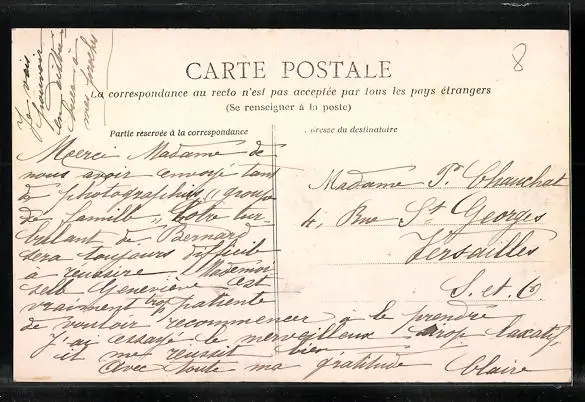 8
CARTE POSTALE
La correspondance au recto n'est pas acceptée par tous les pays étrangers
(Se renseigner à la poste)
Partie réservée à la correspondance
dresse du destinataire
Je vais
pouvoir
en
à
mes proches
Merci Madame de
nous avoir envoyé tant
de photographies "groupe
de famille". Votre tur-
bulent de Bernard
sera toujours difficil
à reussire Mademoi
selle Geneviève est
vraiment trop patiente
de vouloir recommencer à le prendre
J'ai essayé le merveilleux sirop laxatif
il me reussit bien
Avec toute ma gratitude Claire
Madame P. Chauchat
4, Rue St Georges
Versailles
S. et O.